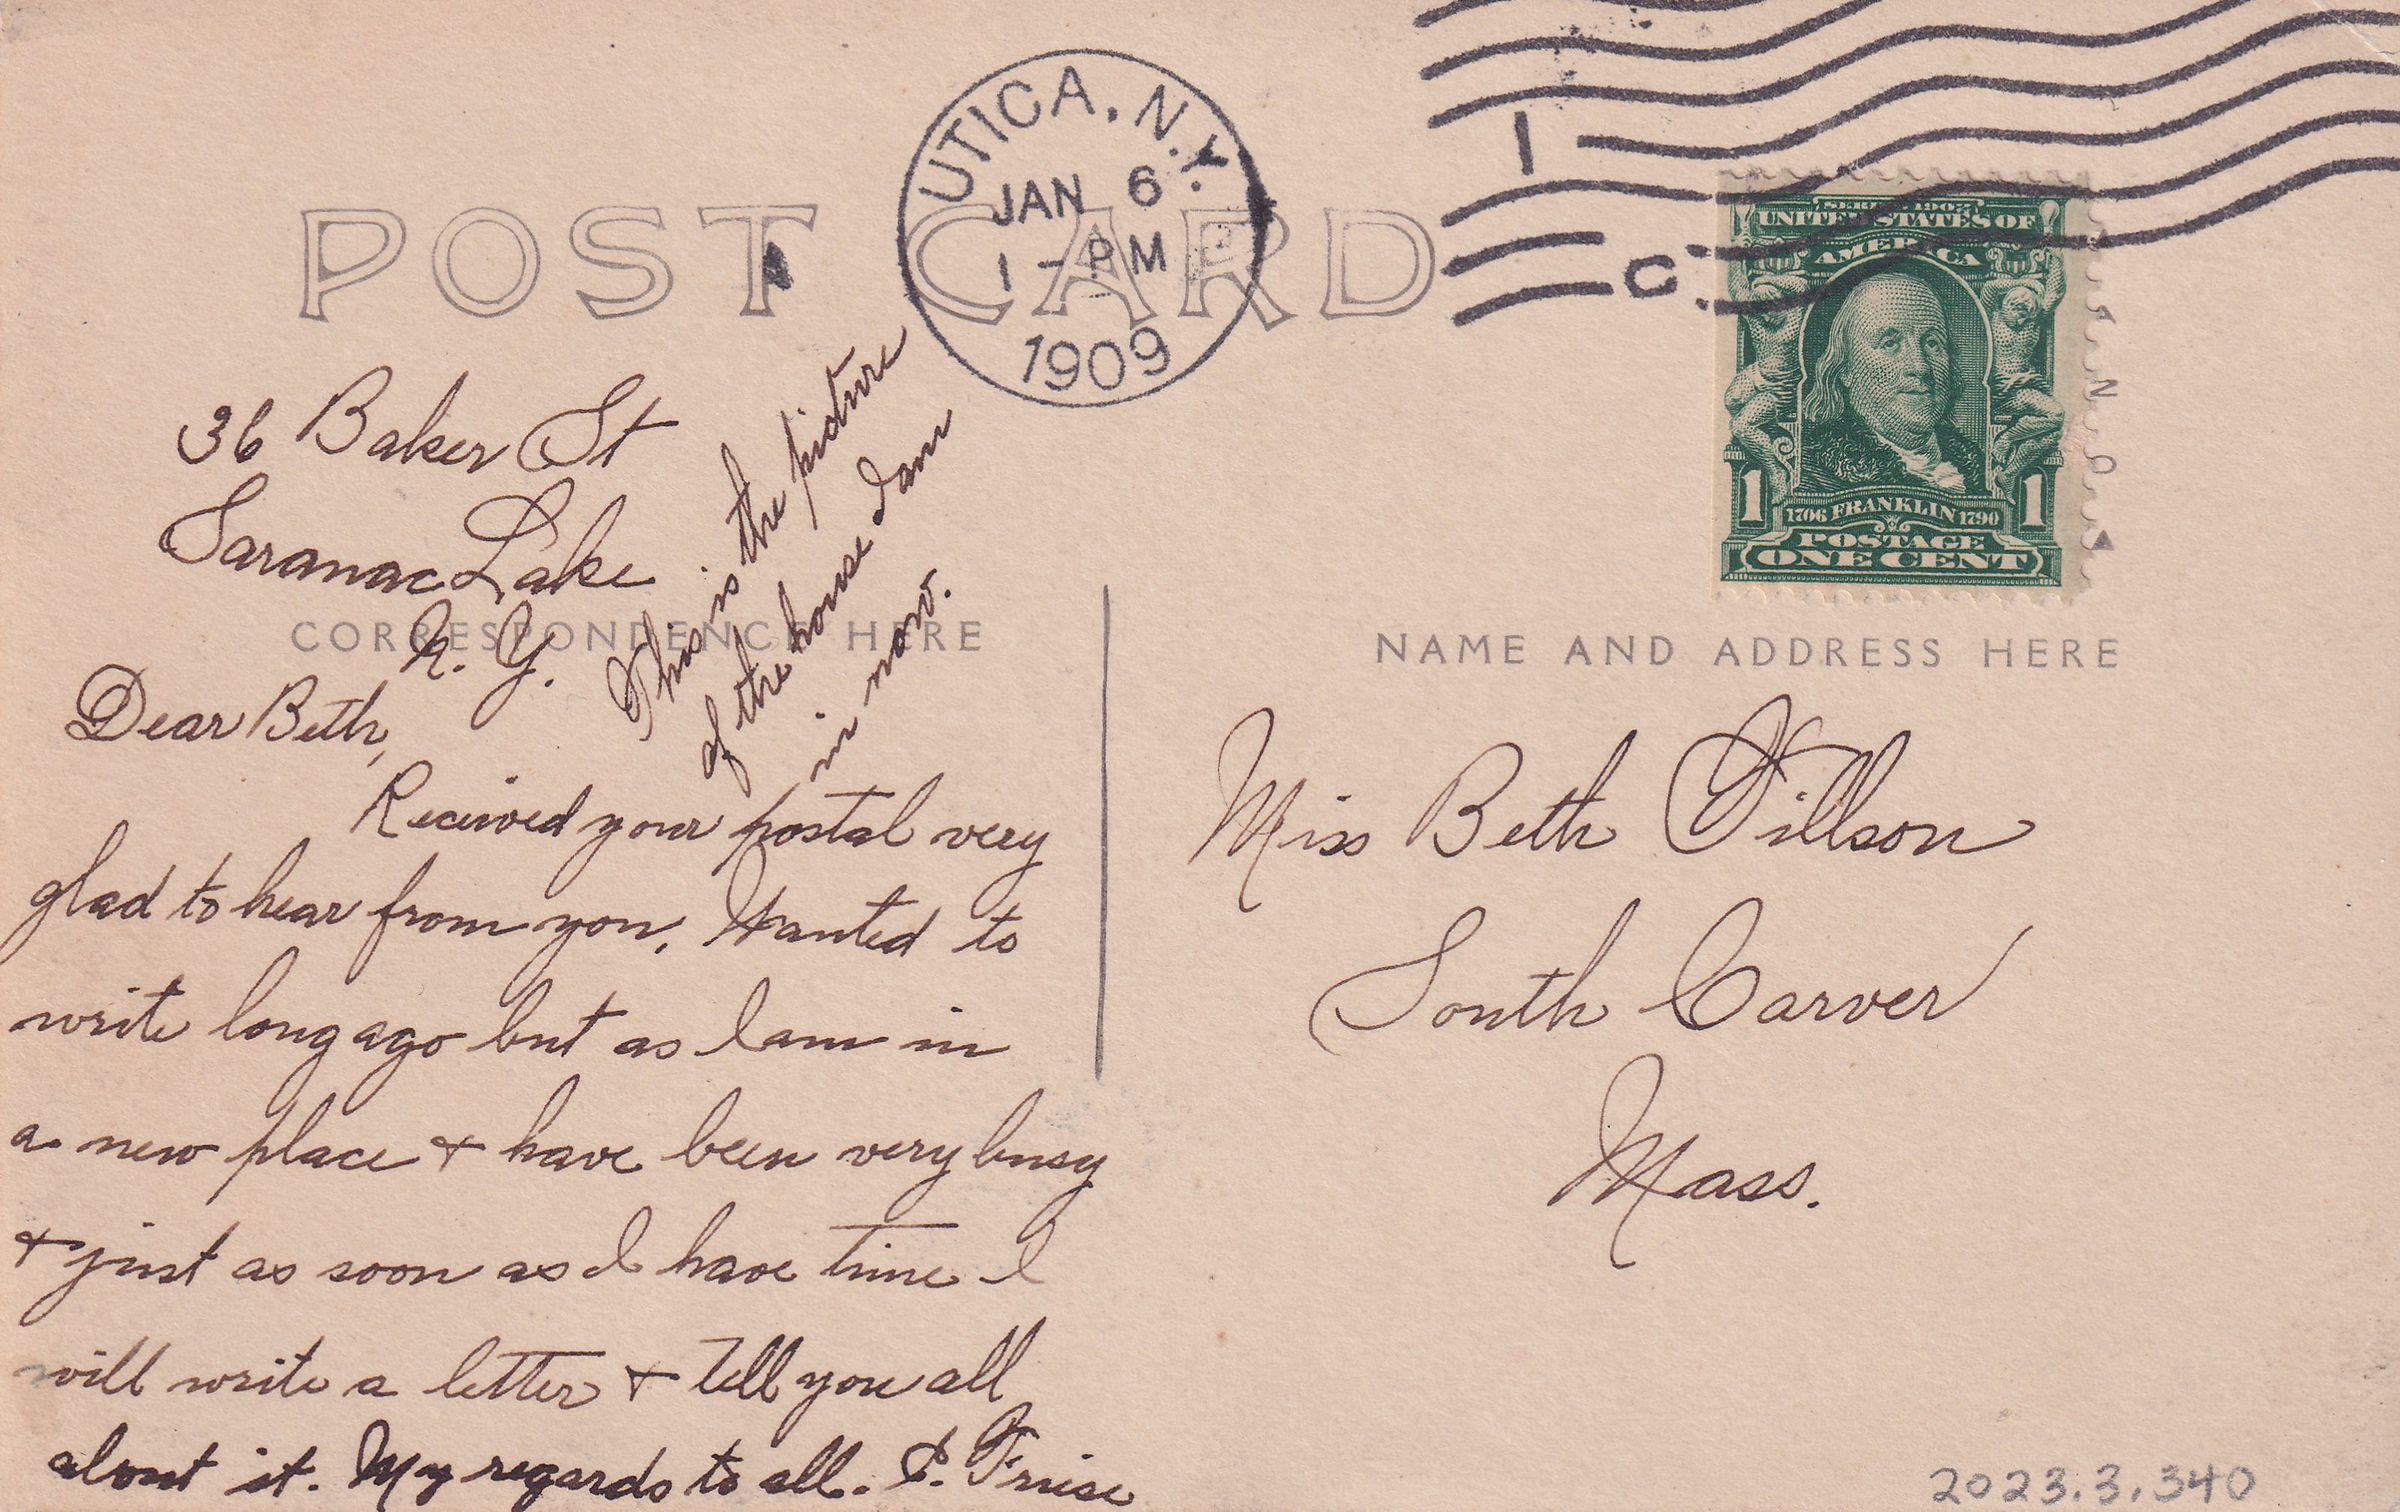 UTICA, N.Y.
JAN 6
1 - PM
1909
1 C.
POST CARD
SERIES 1902
UNITED STATES OF
AMERICA
1 1706 FRANKLIN 1790 1
POSTAGE
ONE CENT
36 Baker St
Saranac Lake
N. Y.
This is the picture
of the house I am
in now.
CORRESPONDENCE HERE
Dear Beth,
Received your postal very
glad to hear from you. Wanted to
write long ago but as I am in
a new place + have been very busy
+ just as soon as I have time I
will write a letter + tell you all
about it. My regards to all.
NAME AND ADDRESS HERE
Miss Beth Tillson
South Carver
Mass.
2023.3.340